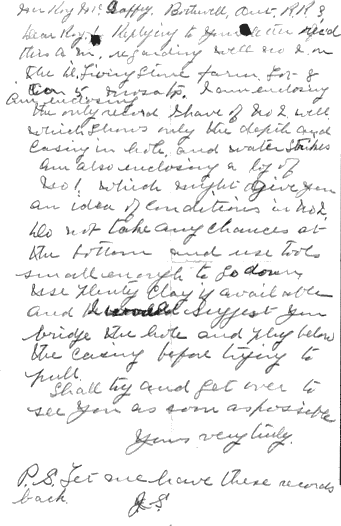 Mr Roy Mc Gaffey, Bothwell, Ont. R.R. 3
Dear Roy. Replying to your letter rec'd
this A.M. regarding well No 2 on
the A. Livingstone farm. Lot 8
Con 5 Mosa Tp. I am enclosing
the only record I have of No 2 well
which shows only the depth and
casing in hole, and water strikes
Am also enclosing a log of
No 1. which might give you
an idea of conditions in No 2.
Do not take any chances at
the bottom and use tools
small enough to go down,
use plenty clay if available
and I would suggest you
bridge the hole and plug below
the casing before trying to
pull.
Shall try and get over to
see you as soon as possible
Yours very truly.
P.S. Let me have these records
back. J.S.